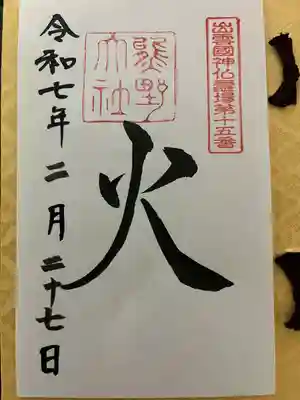 出雲國神仏霊場第十五番
熊野大社
火
令和七年二月二十七日